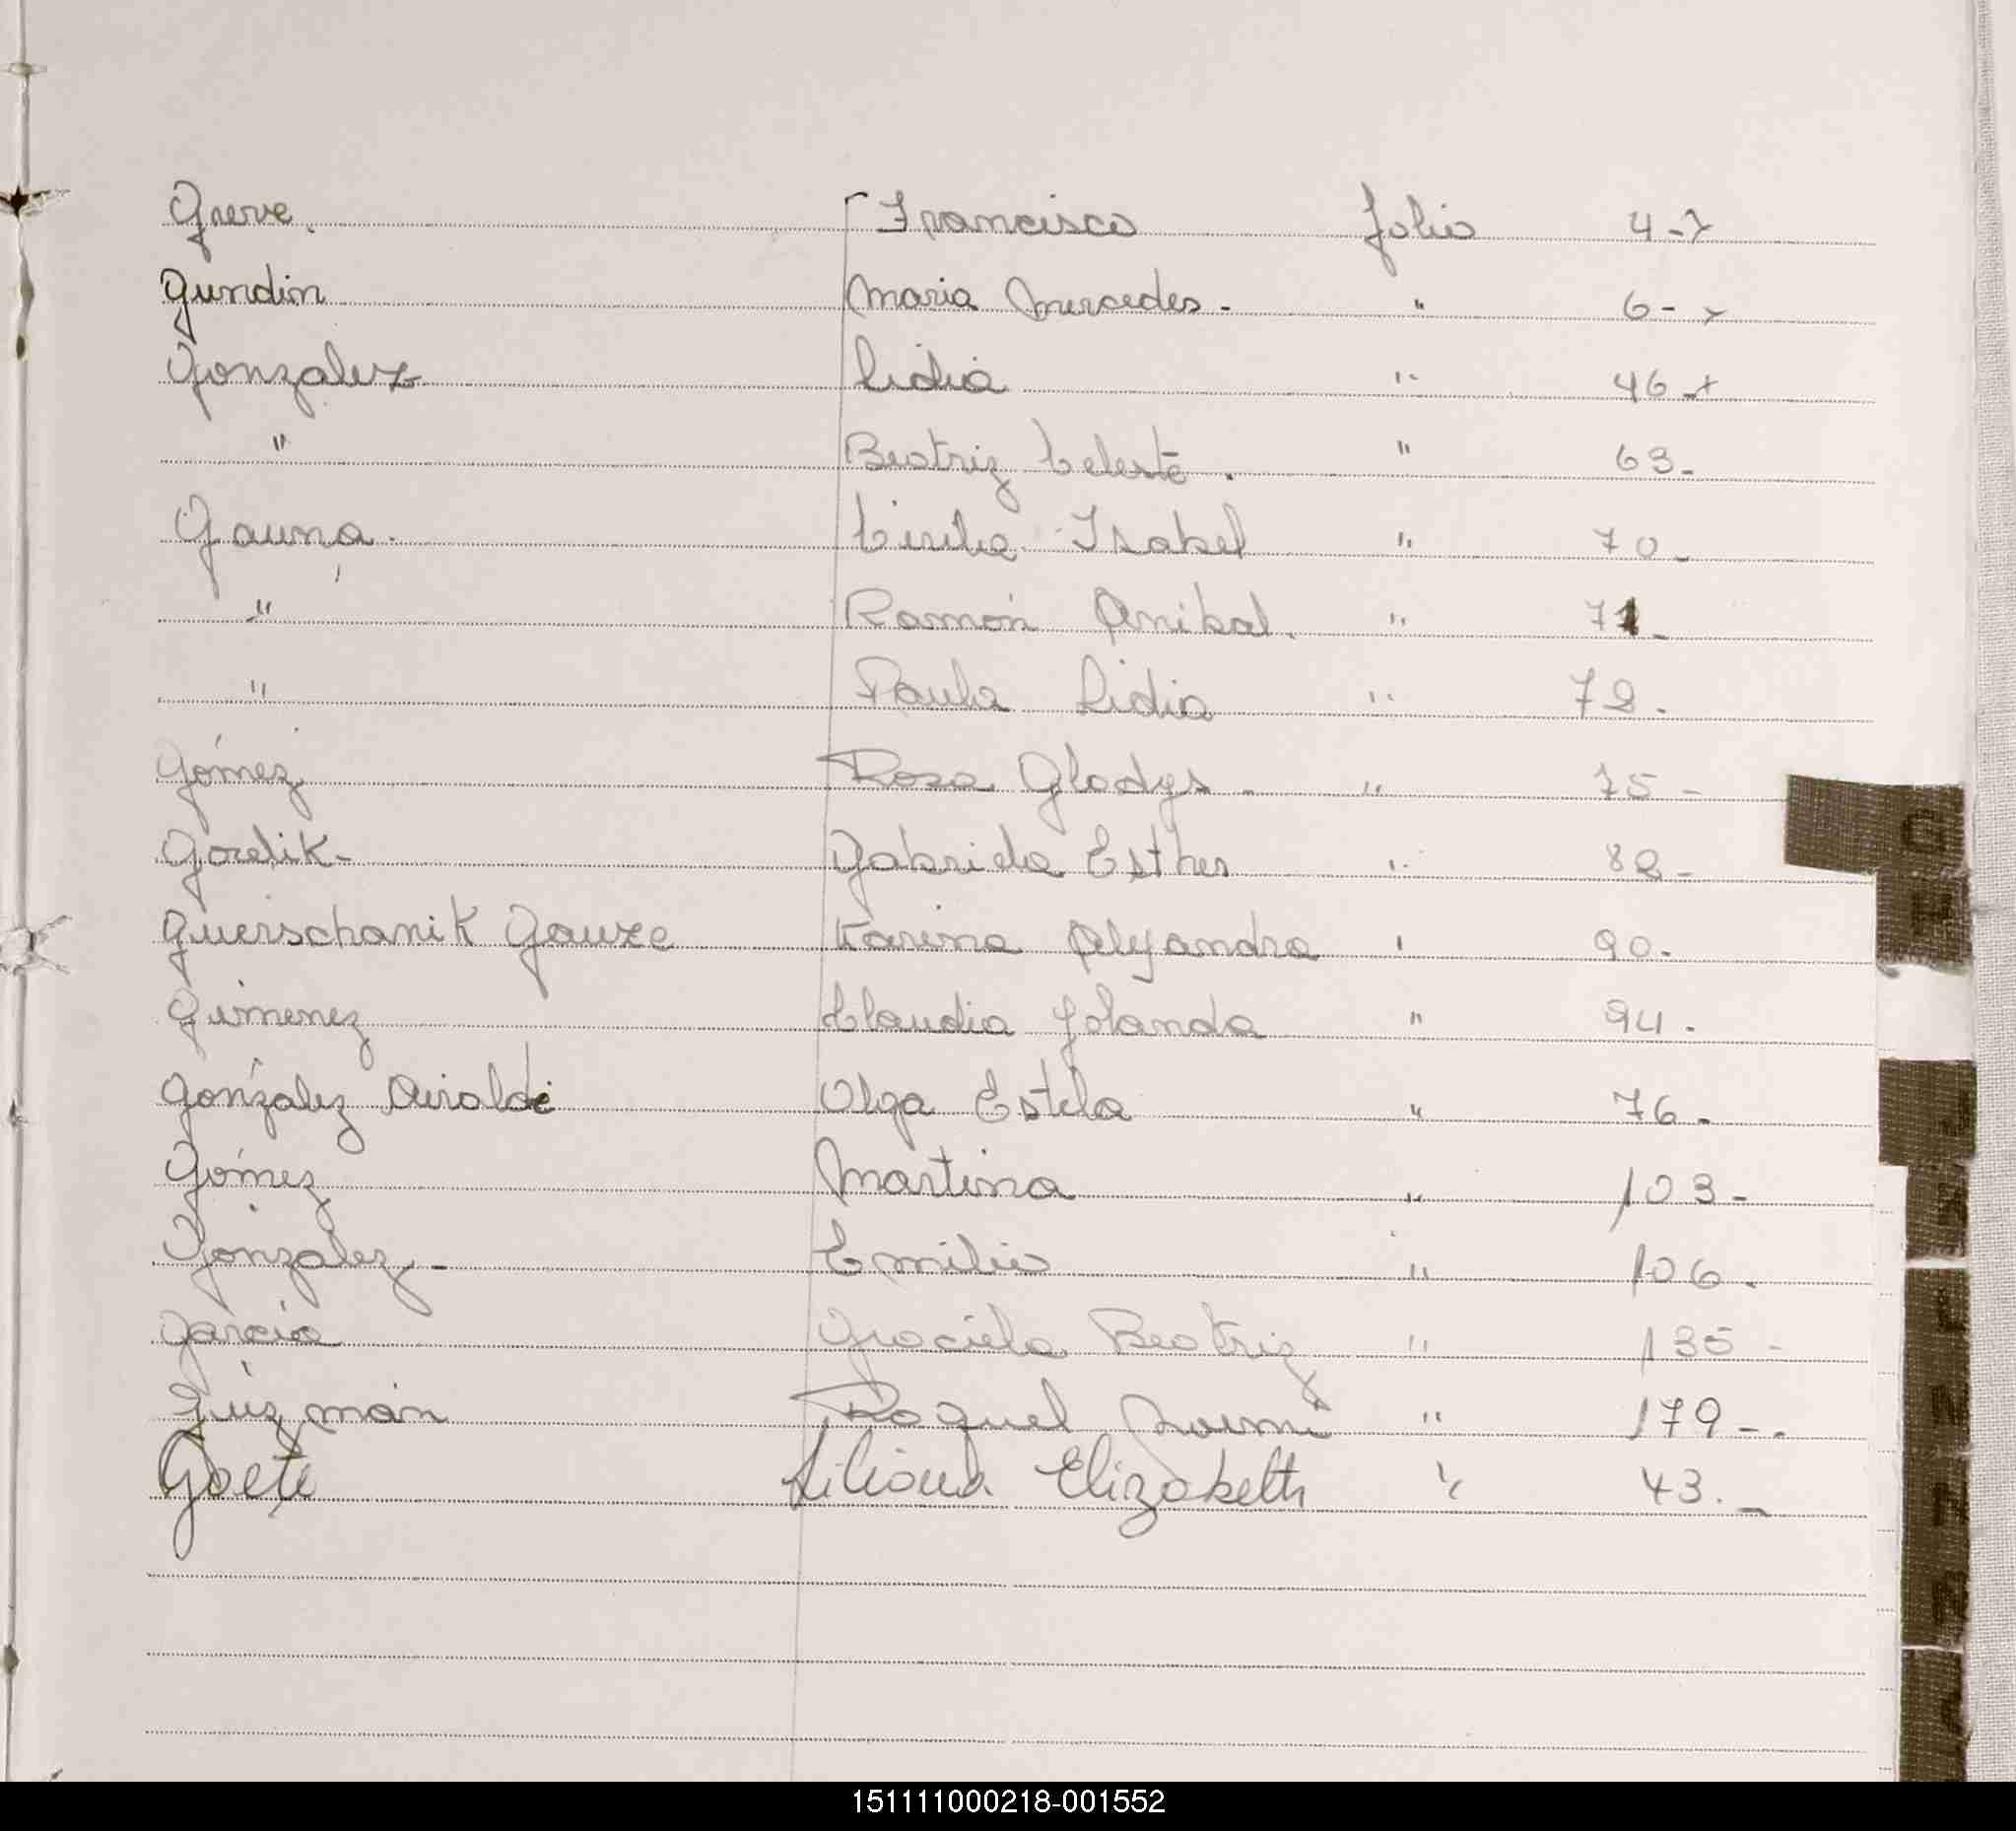 Greve. Francisco folio 4-
Gundin Maria Mercedes. " 6-
Gonzalez Lidia " 46-
" Beatriz Celeste. " 63-
Gauna. Cirila Isabel " 70-
" Ramón Anibal. " 71-
" Paula Lidia " 72.
Gómez Rosa Gladys. " 75-
Gorelik- Gabriela Esther " 82-
Guerschanik Gauze Karina Alejandra " 90.
Gimenez Claudia Yolanda " 94.
González Airaldi Olga Estela " 76-
Gómez Martina " 103-
González- Emilio " 106.
García Graciela Beatriz " 135-
Guzmán Raquel Noemi " 179-.
Goete Liliana Elizabeth " 43.-
G
H
J
K
L
M
N
151111000218-001552